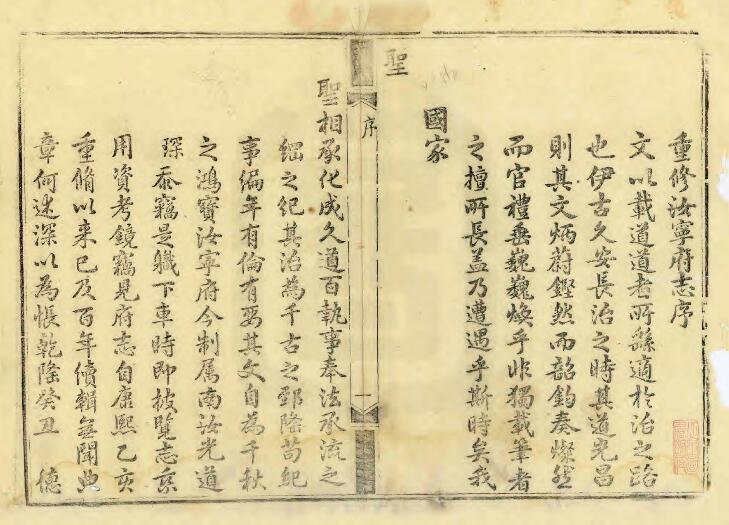 重修汝寧府志序
文以載道道者所繇適於治之路
也伊古久安長治之時其道光昌
則其文炳蔚鏗然而韶鈞奏燦然
而官禮垂巍巍煥乎非獨載筆者
之擅所長蓋乃遭遇乎斯時矣我
國家
聖
序
聖相承化成久道百執事奉法承流之
細之紀其治為千古之郅隆苟紀
事編年有倫有要其文自為千秋
之鴻寶汝寧府今制属南汝光道
琛忝竊是職下車時即披覽志乘
用資考鏡竊見府志自康熙乙亥
重脩以来已及百年續輯無聞典
章何述深以為悵乾隆癸丑 德